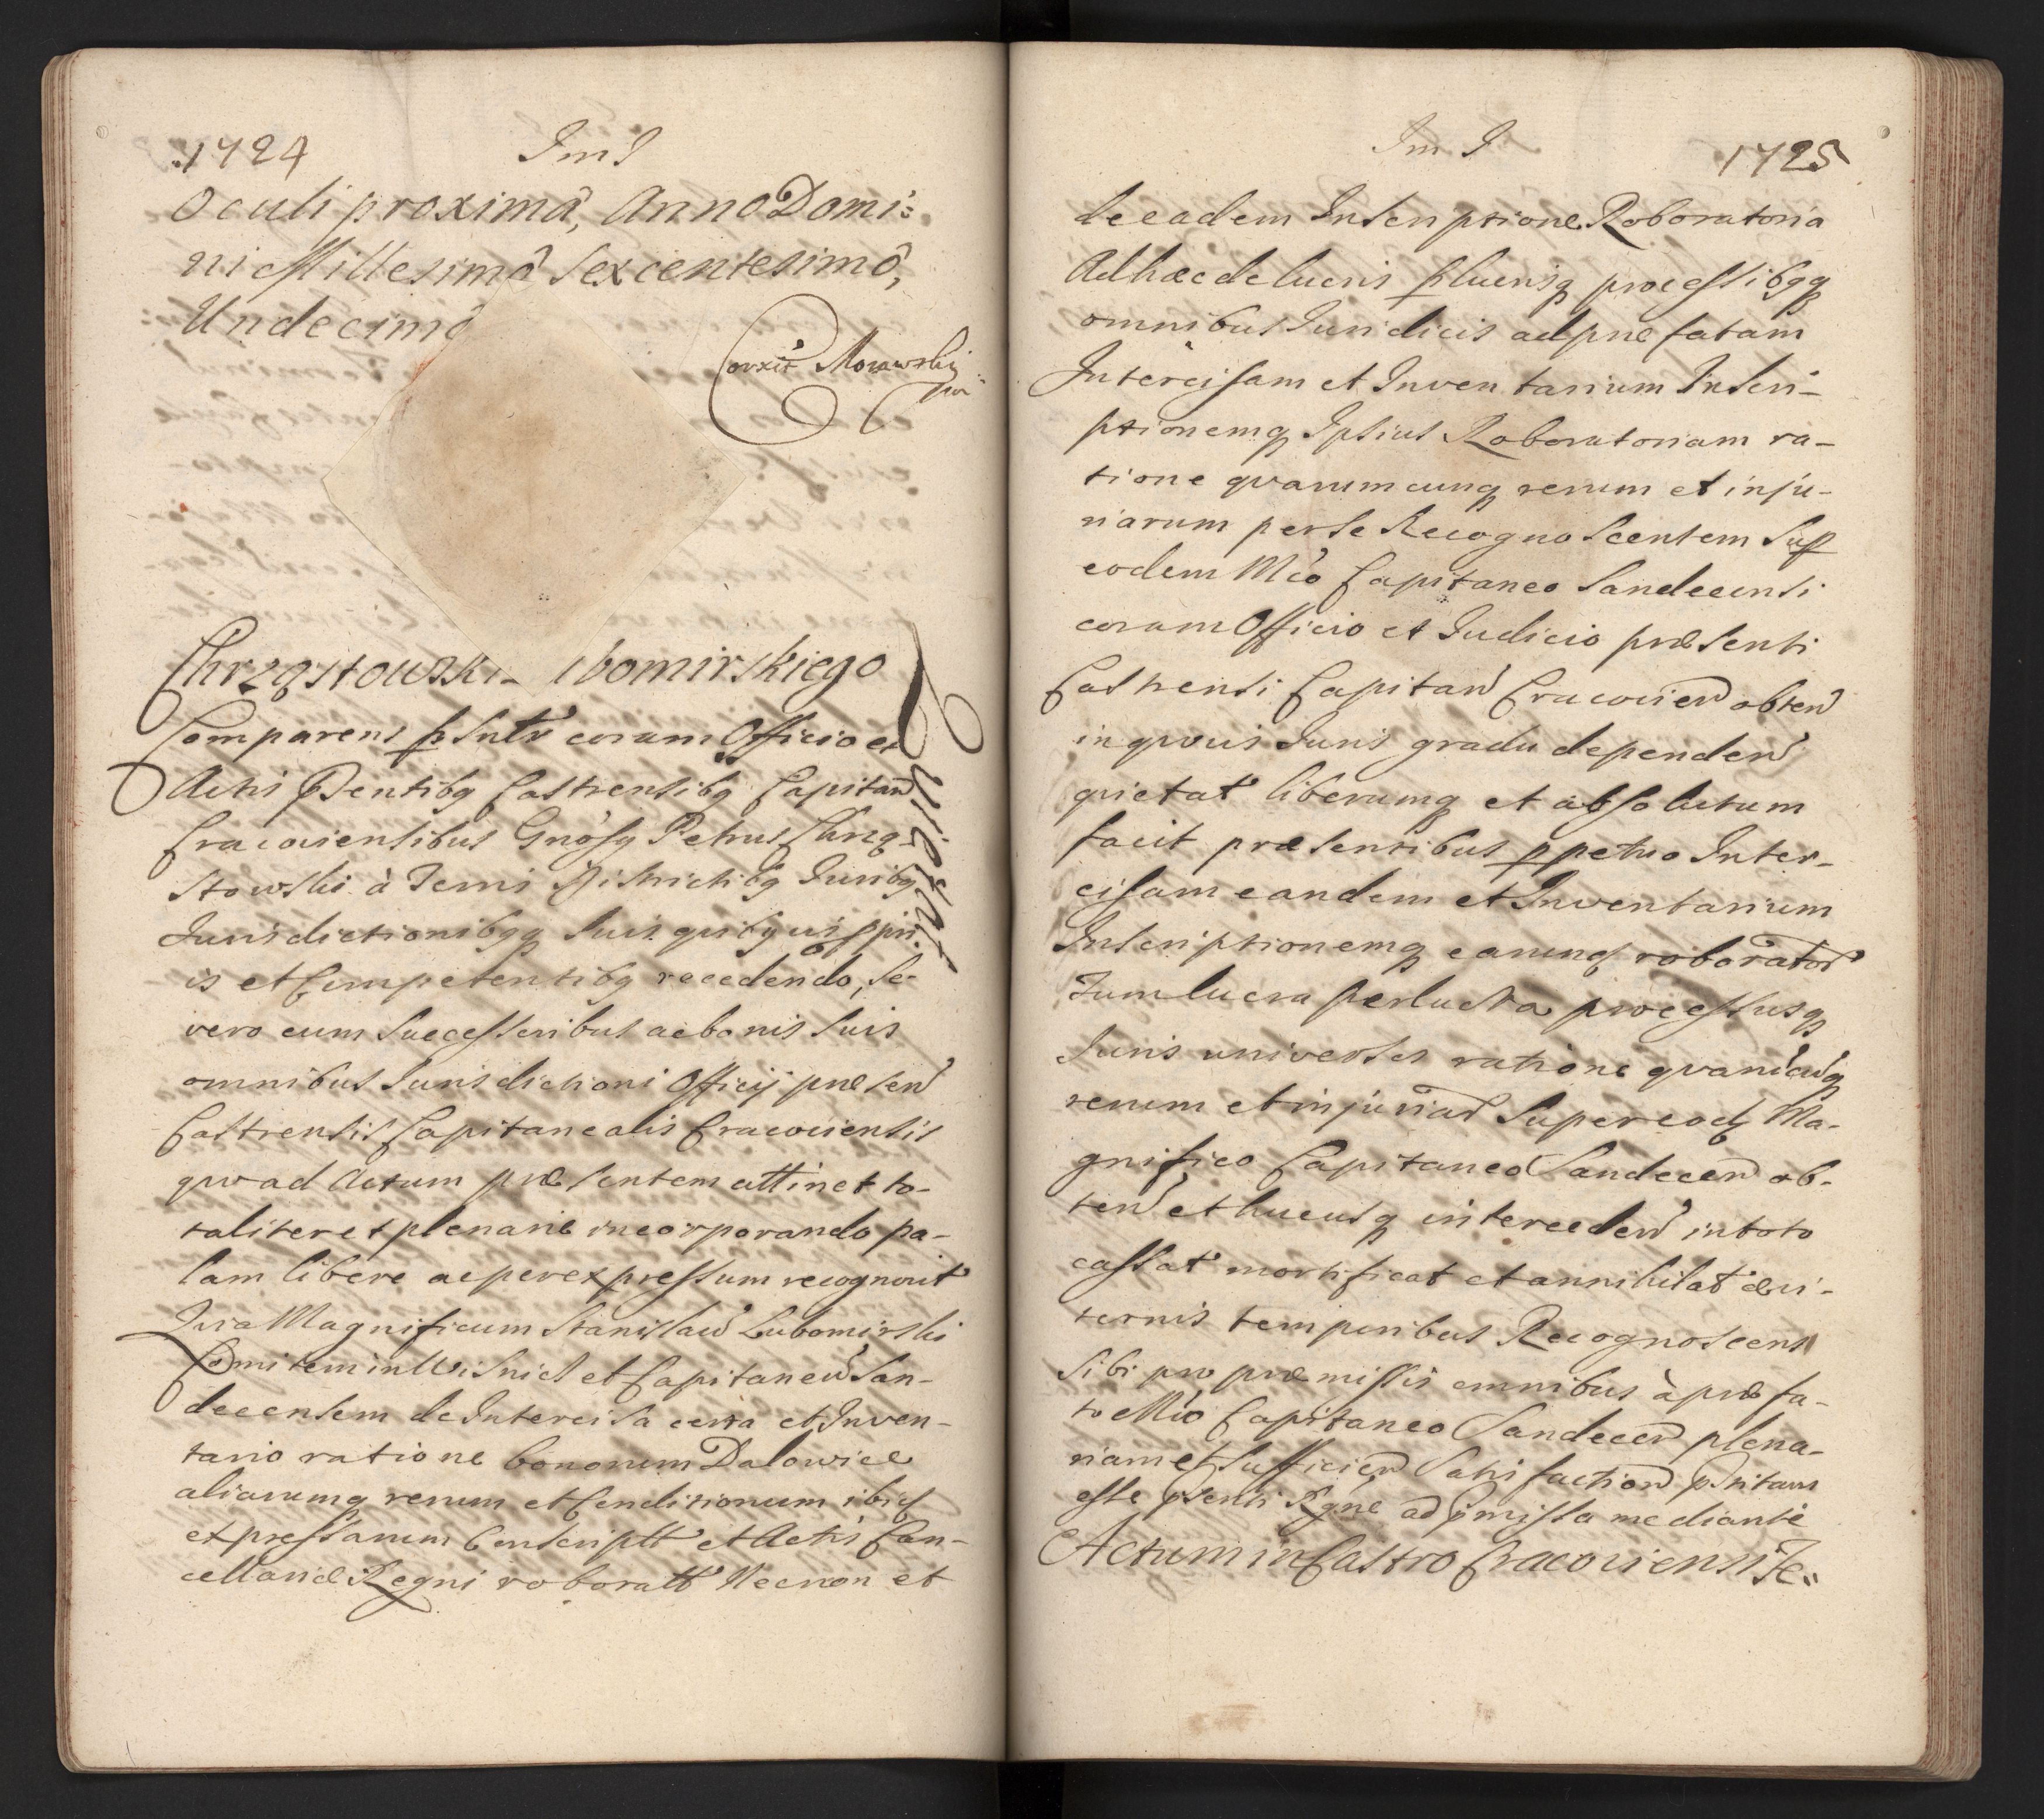 1724
Im I
Oculi proximâ, Anno Domi:
ni Millesimô Sexcentesimô,
Undecimô
Corrxit Morawski
mp
Chrząstowski ubomirskiego
Quietat
Comparens psnlr coram Officio et
Actis Psentibq Castrensibq Capitan
Cracoviensibus Gnosq Petrus Chrzą-
stowski à Terris Districtibq Juribq
Jurisdictionibqq suis quibqvis ppri-
is et Competentibq recedendo, Se
vero cum Successoribus ac bonis suis
omnibus Jurisdictioni Officij præsen
Castrensis Capitanealis Cracoviensis
quoad Actum præsentem attinet to-
taliter et plenarie incorporando pa-
lam libere ac per expressum recognovit
Quia Magnificum Stanislaum Lubomirski
Comitem in Wisnicz et Capitaneum San-
decensem de Intercisa certa et Inven-
tario ratione bonorum Dalowice
aliarumq rerum et Conditionum ibid
expressarum Conscriptt et Actis Can-
cellariæ Regni roboratt Necnon et
Im I
1725
de eadem Inscriptione Roboratoria
Ad hæc de lucris plucrisq processibqq
omnibus Juridicis ad præfatam
Intercisam et Inventarium Inscri-
ptionemq Ipsius Roboratoriam ra-
tione quarumcunq rerum et inju-
riarum per se Recognoscentem Sup
eodem Mco Capitaneo Sandecensi
coram Officio et Judicio præsenti
Castrensi Capitan Cracovien obten
in quovis Juris gradu dependen
quietat liberumq et absolutum
facit præsentibus ppetuo Inter-
cisam eandem et Inventarium
Inscriptionemq earunq roborator
Tum lucra perlucra processusq
Juris universos ratione quarucuq
rerum et injuriar Super eod Ma-
gnifico Capitaneo Sandecen ob-
ten et hucusq interceden in toto
cassat mortificat et annihilat ævi-
ternis temporibus Recognoscens
Sibi pro præmissis omnibus à præfa-
to Mco Capitaneo Sandecen plena-
riam et Sufficien Satisfaction pstitam
esse psenti Rgne ad pmissa mediante
Actum in Castro Cracoviensi Fe: